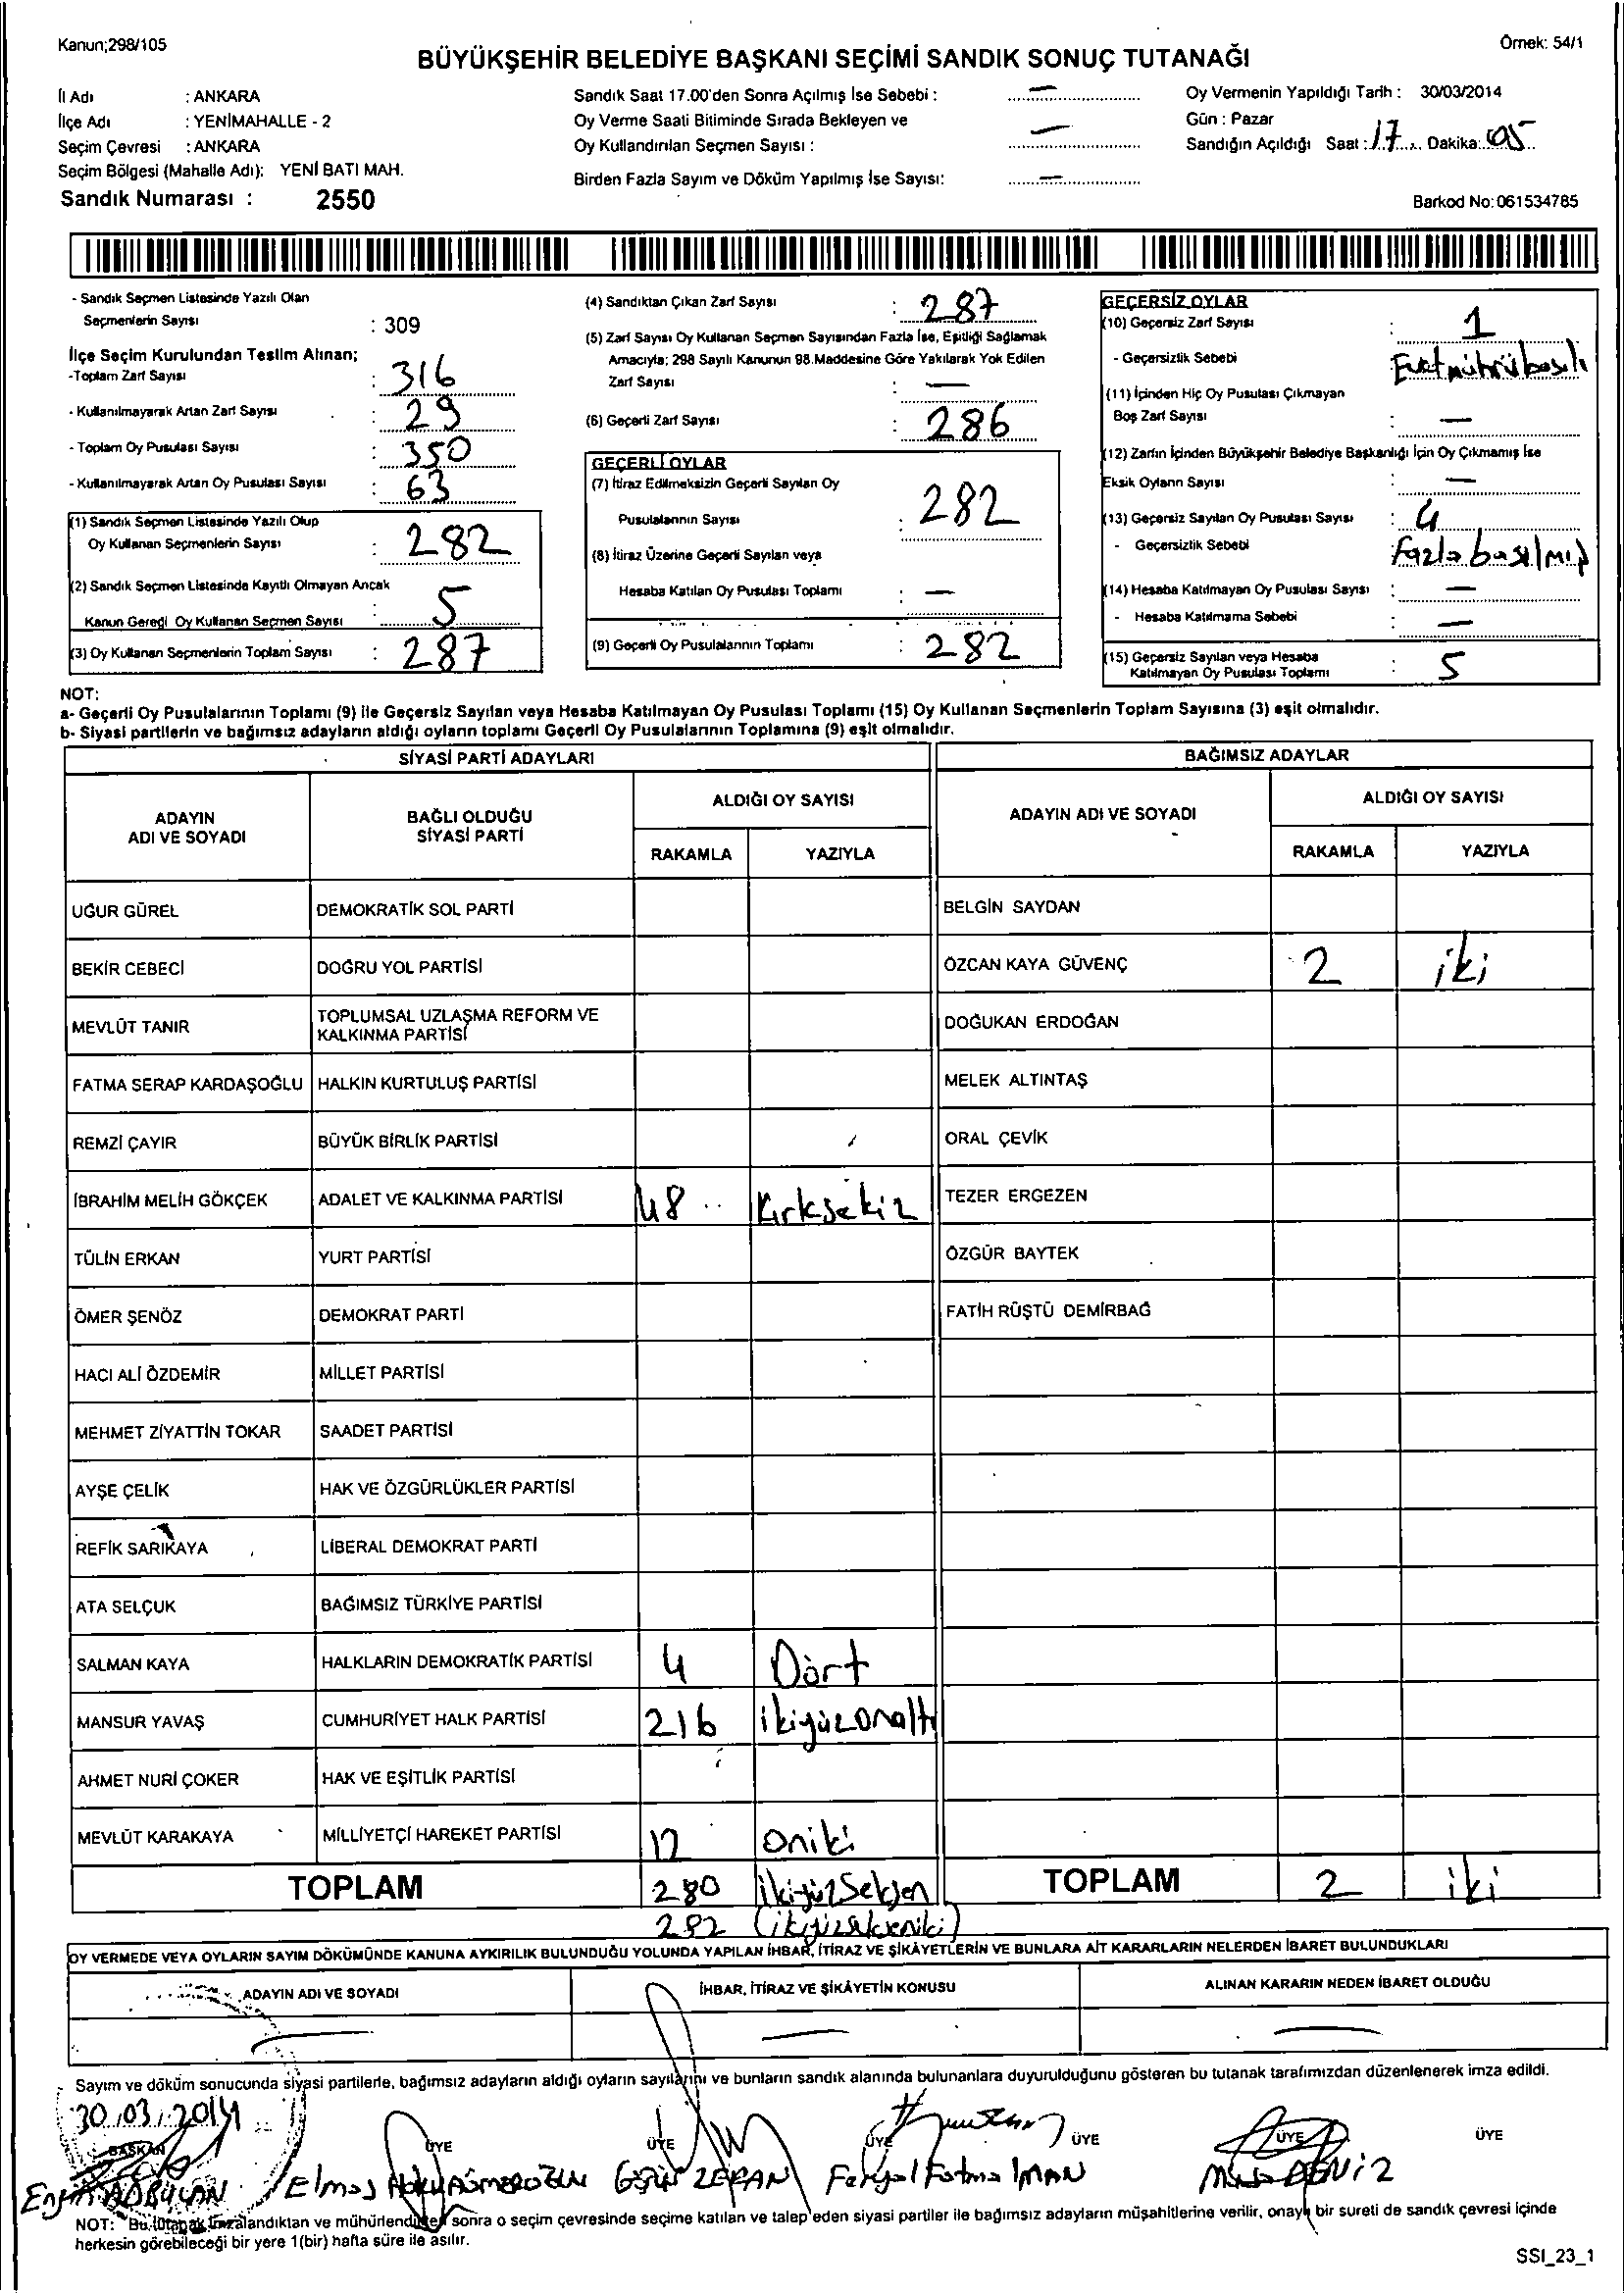 Kanun;298/105
Örnek: 54/1
BÜYÜKŞEHİR BELEDİYE BAŞKANI SEÇİMİ SANDIK SONUÇ TUTANAĞI
İl Adı : ANKARA
İlçe Adı : YENİMAHALLE - 2
Seçim Çevresi : ANKARA
Seçim Bölgesi (Mahalle Adı): YENİ BATI MAH.
Sandık Numarası : 2550
Sandık Saat 17.00'den Sonra Açılmış İse Sebebi : —
Oy Verme Saati Bitiminde Sırada Bekleyen ve
Oy Kullandırılan Seçmen Sayısı : —
Birden Fazla Sayım ve Döküm Yapılmış İse Sayısı: —
Oy Vermenin Yapıldığı Tarih : 30/03/2014
Gün : Pazar
Sandığın Açıldığı Saat : 17 Dakika: 05
Barkod No: 061534785
- Sandık Seçmen Listesinde Yazılı Olan
Seçmenlerin Sayısı : 309
İlçe Seçim Kurulundan Teslim Alınan;
-Toplam Zarf Sayısı : 316
- Kullanılmayarak Artan Zarf Sayısı : 29
- Toplam Oy Pusulası Sayısı : 350
- Kullanılmayarak Artan Oy Pusulası Sayısı : 63
(1) Sandık Seçmen Listesinde Yazılı Olup
Oy Kullanan Seçmenlerin Sayısı : 282
(2) Sandık Seçmen Listesinde Kayıtlı Olmayan Ancak
Kanun Gereği Oy Kullanan Seçmen Sayısı : 5
(3) Oy Kullanan Seçmenlerin Toplam Sayısı : 287
(4) Sandıktan Çıkan Zarf Sayısı : 287
(5) Zarf Sayısı Oy Kullanan Seçmen Sayısından Fazla İse, Eşitliği Sağlamak
Amacıyla; 298 Sayılı Kanunun 98.Maddesine Göre Yakılarak Yok Edilen
Zarf Sayısı : —
(6) Geçerli Zarf Sayısı : 286
GEÇERLİ OYLAR
(7) İtiraz Edilmeksizin Geçerli Sayılan Oy
Pusulalarının Sayısı : 282
(8) İtiraz Üzerine Geçerli Sayılan veya
Hesaba Katılan Oy Pusulası Toplamı : —
(9) Geçerli Oy Pusulalarının Toplamı : 282
GEÇERSİZ OYLAR
(10) Geçersiz Zarf Sayısı : 1
- Geçersizlik Sebebi : Evet mührü basılı
(11) İçinden Hiç Oy Pusulası Çıkmayan
Boş Zarf Sayısı : —
(12) Zarfın İçinden Büyükşehir Belediye Başkanlığı İçin Oy Çıkmamış İse
Eksik Oyların Sayısı : —
(13) Geçersiz Sayılan Oy Pusulası Sayısı : 4
- Geçersizlik Sebebi : Fazla basılmış
(14) Hesaba Katılmayan Oy Pusulası Sayısı : —
- Hesaba Katılmama Sebebi : —
(15) Geçersiz Sayılan veya Hesaba
Katılmayan Oy Pusulası Toplamı : 5
NOT:
a- Geçerli Oy Pusulalarının Toplamı (9) ile Geçersiz Sayılan veya Hesaba Katılmayan Oy Pusulası Toplamı (15) Oy Kullanan Seçmenlerin Toplam Sayısına (3) eşit olmalıdır.
b- Siyasi partilerin ve bağımsız adayların aldığı oyların toplamı Geçerli Oy Pusulalarının Toplamına (9) eşit olmalıdır.
SİYASİ PARTİ ADAYLARI
ADAYIN
ADI VE SOYADI
BAĞLI OLDUĞU
SİYASİ PARTİ
ALDIĞI OY SAYISI
RAKAMLA YAZIYLA
UĞUR GÜREL DEMOKRATİK SOL PARTİ
BEKİR CEBECİ DOĞRU YOL PARTİSİ
MEVLÜT TANIR TOPLUMSAL UZLAŞMA REFORM VE
KALKINMA PARTİSİ
FATMA SERAP KARDAŞOĞLU HALKIN KURTULUŞ PARTİSİ
REMZİ ÇAYIR BÜYÜK BİRLİK PARTİSİ
İBRAHİM MELİH GÖKÇEK ADALET VE KALKINMA PARTİSİ 48 Kırksekiz
TÜLİN ERKAN YURT PARTİSİ
ÖMER ŞENÖZ DEMOKRAT PARTİ
HACI ALİ ÖZDEMİR MİLLET PARTİSİ
MEHMET ZİYATTİN TOKAR SAADET PARTİSİ
AYŞE ÇELİK HAK VE ÖZGÜRLÜKLER PARTİSİ
REFİK SARIKAYA LİBERAL DEMOKRAT PARTİ
ATA SELÇUK BAĞIMSIZ TÜRKİYE PARTİSİ
SALMAN KAYA HALKLARIN DEMOKRATİK PARTİSİ 4 Dört
MANSUR YAVAŞ CUMHURİYET HALK PARTİSİ 216 ikiyüzonaltı
AHMET NURİ ÇOKER HAK VE EŞİTLİK PARTİSİ
MEVLÜT KARAKAYA MİLLİYETÇİ HAREKET PARTİSİ 12 oniki
TOPLAM 280 ikiyüzSeksen
282 (ikiyüzsekseniki)
BAĞIMSIZ ADAYLAR
ADAYIN ADI VE SOYADI
ALDIĞI OY SAYISI
RAKAMLA YAZIYLA
BELGİN SAYDAN
ÖZCAN KAYA GÜVENÇ 2 iki
DOĞUKAN ERDOĞAN
MELEK ALTINTAŞ
ORAL ÇEVİK
TEZER ERGEZEN
ÖZGÜR BAYTEK
FATİH RÜŞTÜ DEMİRBAĞ
TOPLAM 2 iki
OY VERMEDE VEYA OYLARIN SAYIM DÖKÜMÜNDE KANUNA AYKIRILIK BULUNDUĞU YOLUNDA YAPILAN İHBAR, İTİRAZ VE ŞİKÂYETLERİN VE BUNLARA AİT KARARLARIN NELERDEN İBARET BULUNDUKLARI
ADAYIN ADI VE SOYADI İHBAR, İTİRAZ VE ŞİKÂYETİN KONUSU ALINAN KARARIN NEDEN İBARET OLDUĞU
— — —
Sayım ve döküm sonucunda siyasi partilerle, bağımsız adayların aldığı oyların sayılarını ve bunların sandık alanında bulunanlara duyurulduğunu gösteren bu tutanak tarafımızdan düzenlenerek imza edildi.
30.03.2014
BAŞKAN ÜYE ÜYE ÜYE ÜYE ÜYE ÜYE
Engin Elmas Feryal Fatma İMAN Musa DENİZ
NOT: Bu tutanak imzalandıktan ve mühürlendikten sonra o seçim çevresinde seçime katılan ve talep eden siyasi partiler ile bağımsız adayların müşahitlerine verilir, onaylı bir sureti de sandık çevresi içinde
herkesin görebileceği bir yere 1(bir) hafta süre ile asılır.
SSI_23_1